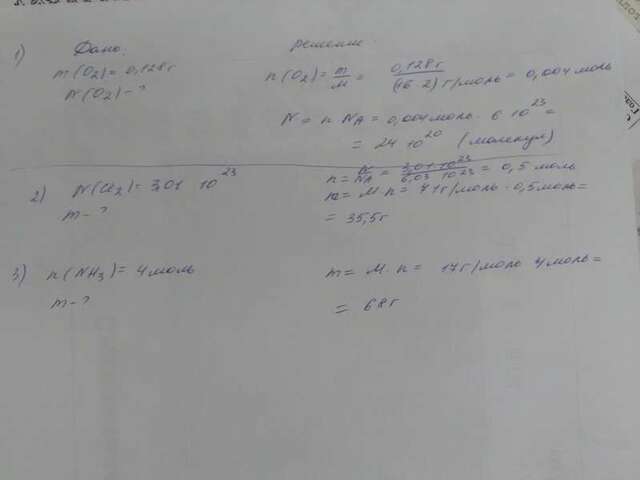 1) Дано: Решение
m(O₂) = 0,128 г n(O₂) = m/M = 0,128 г / (16·2) г/моль = 0,004 моль
N(O₂) - ?
N = n NA = 0,004 моль · 6 10²³ =
= 24 10²⁰ (молекул)
2) N(Cl₂) = 3,01 10²³ n = N/NA = 3,01·10²³ / 6,03 10 23 = 0,5 моль
m - ? m = M n = 71 г/моль · 0,5 моль =
= 35,5 г
3) n(NH₃) = 4 моль m = M·n = 17 г/моль 4 моль =
m - ? = 68 г